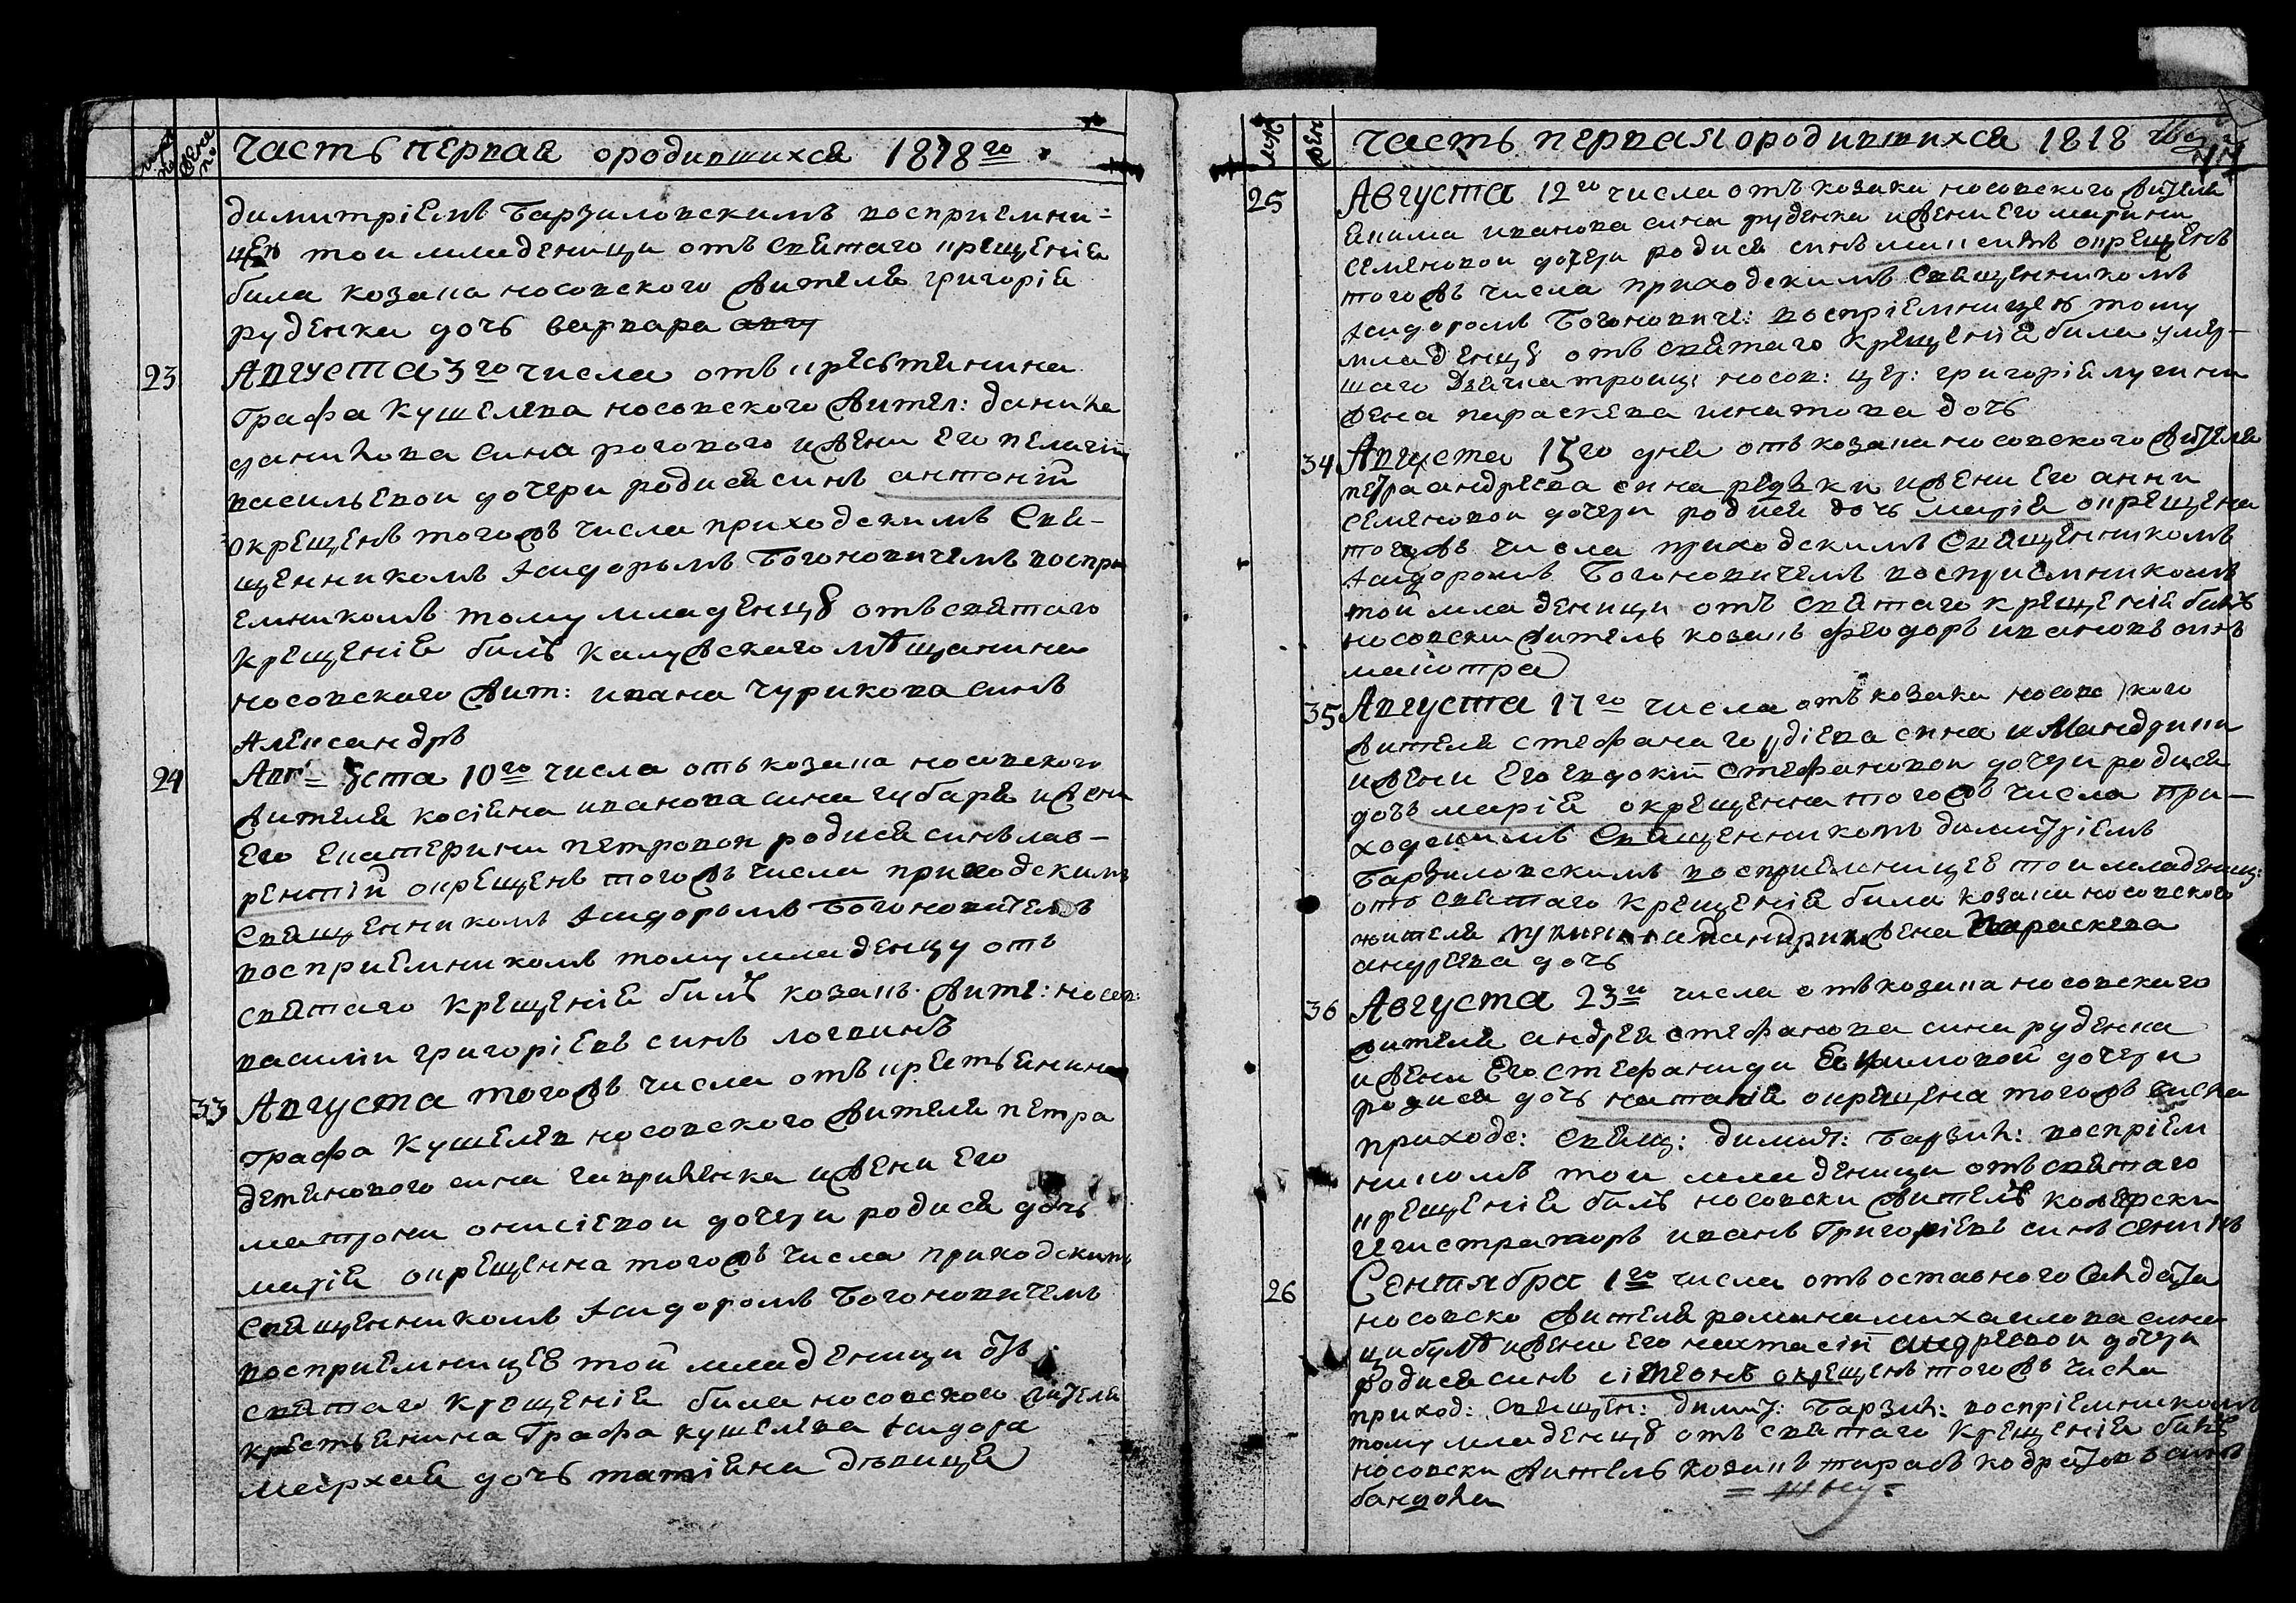 часть первая ородившихся 1818 го
димитріемъ Барзиловскимъ восприемни=
цею тои младеници отъ святаго крещенія
била козака носовского жителя григорія
руденка дочъ варвара
23 Августа 3 го числа отъ крестянина
Графа Кушелева носовского жител: данила
данилова сина рогового и жени его пелагіи
васильевои дочери родися синъ антоній
окрещенъ того жъ числа приходскимъ Свя-
щенникомъ Ісидоромъ Богоновичемъ воспри
емникомъ тому младенцу отъ святаго
крещенія билъ калужскаго мѣщанина
носовского жит: ивана чурикова синъ
Александръ
24 Августа 10 го числа отъ козака носовского
жителя косіяна иванова сина губаря и жени
его екатерини петровои родися синъ лав-
рентій окрещенъ того жъ числа приходскимъ
Священникомъ Ісидоромъ Богоновичемъ
восприемникомъ тому младенцу отъ
святаго крещенія билъ козакъ жите: носов:
василіи григоріевъ синъ логвинъ
33 Августа того жъ числа отъ крестьянина
графа Кушелев носовского жителя петра
сина гавриленка и жени его
матрони онисіевои дочери родися дочъ
марія окрещенна того жъ числа приходскимъ
Священникомъ Ісидоромъ Богоновичемъ
восприемницею той младеници отъ
святаго крещенія била носовского жителя
крестьянина Графа кушелева Ісидора
дочъ татіяна дѣвица
муж жен часть первая ородившихся 1818
25 Августа 12 го числа отъ козака носовского жителя
якима иванова сина руденка и жени его марини
семеновои дочери родися синъ максимъ окрещенъ
того жъ числа приходскимъ Священникомъ
Ісидоромъ Богоновиче: воспріемницею тому
младенцу отъ святаго крещенія била умер-
шаго дячка троиц: носов: цер: григорія
жена параскева игнатова дочъ
34 Августа 15 го дня отъ козака носовского жителя
петра андреева сина редьки и жени его анни
семеновои дочери родися дочъ марія окрещена
того жъ числа приходскимъ Священникомъ
Ісидоромъ Богоновичемъ восприемникомъ
той младеници отъ святаго крещенія билъ
носовски житель козакъ феодоръ ивановъ синъ
35 Августа 17 го числа отъ козака носовского
жителя стефана гордіева сина Мандрики
и жени его евдокіи стефановои дочери родися
дочъ марія окрещенна того жъ числа при-
ходскимъ Священникомъ димитріемъ
Барзиловскимъ восприемницею тои младениц:
отъ святаго крещенія била козака носовского
жителя мандрики жена Параскева
андреева дочъ
36 Августа 23 го числа отъ козака носовского
жителя андрея стефанова сина руденка
и жени его стефаниди Евфимовой дочери
родися дочъ наталія окрещена того жъ числа
приходс: Свящ: димит: Барзил: воспріем
никомъ тои младеници отъ святаго
крещенія билъ носовски житель колежски
регистраторъ иванъ Григоріевъ синъ
26 Сентября 1 го числа отъ оставного салдата
носовско жителя романа михаилова сина
цибулѣ и жени его анастасіи андреевои дочери
родися синъ сімеонъ окрещенъ того жъ числа
приход: Священ: димит: Барзил: воспріемникомъ
тому младенцу отъ святаго крещенія билъ
носовски житель козакъ тарасъ кодратовъ синъ